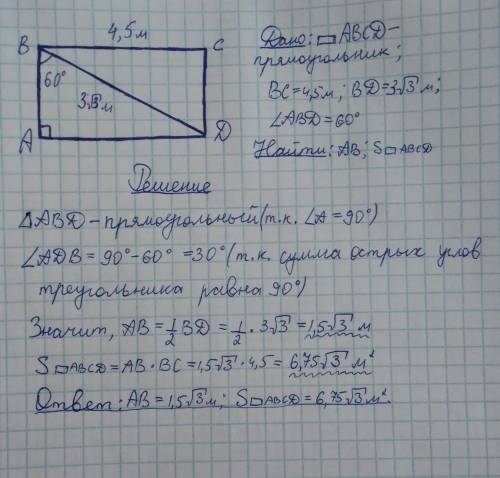 4,5м
B
C
60°
3√3м
A
D
Дано: ▭ABCD-
прямоугольник;
BC=4,5м; BD=3√3м;
∠ABD=60°
Найти: AB; S▭ABCD
Решение
△ABD-прямоугольный(т.к. ∠A=90°)
∠ADB=90°-60°=30°(т.к. сумма острых углов
треугольника равна 90°)
Значит, AB=1/2BD=1/2·3√3=1,5√3 м
S▭ABCD=AB·BC=1,5√3·4,5=6,75√3 м²
Ответ: AB=1,5√3м; S▭ABCD=6,75√3м².